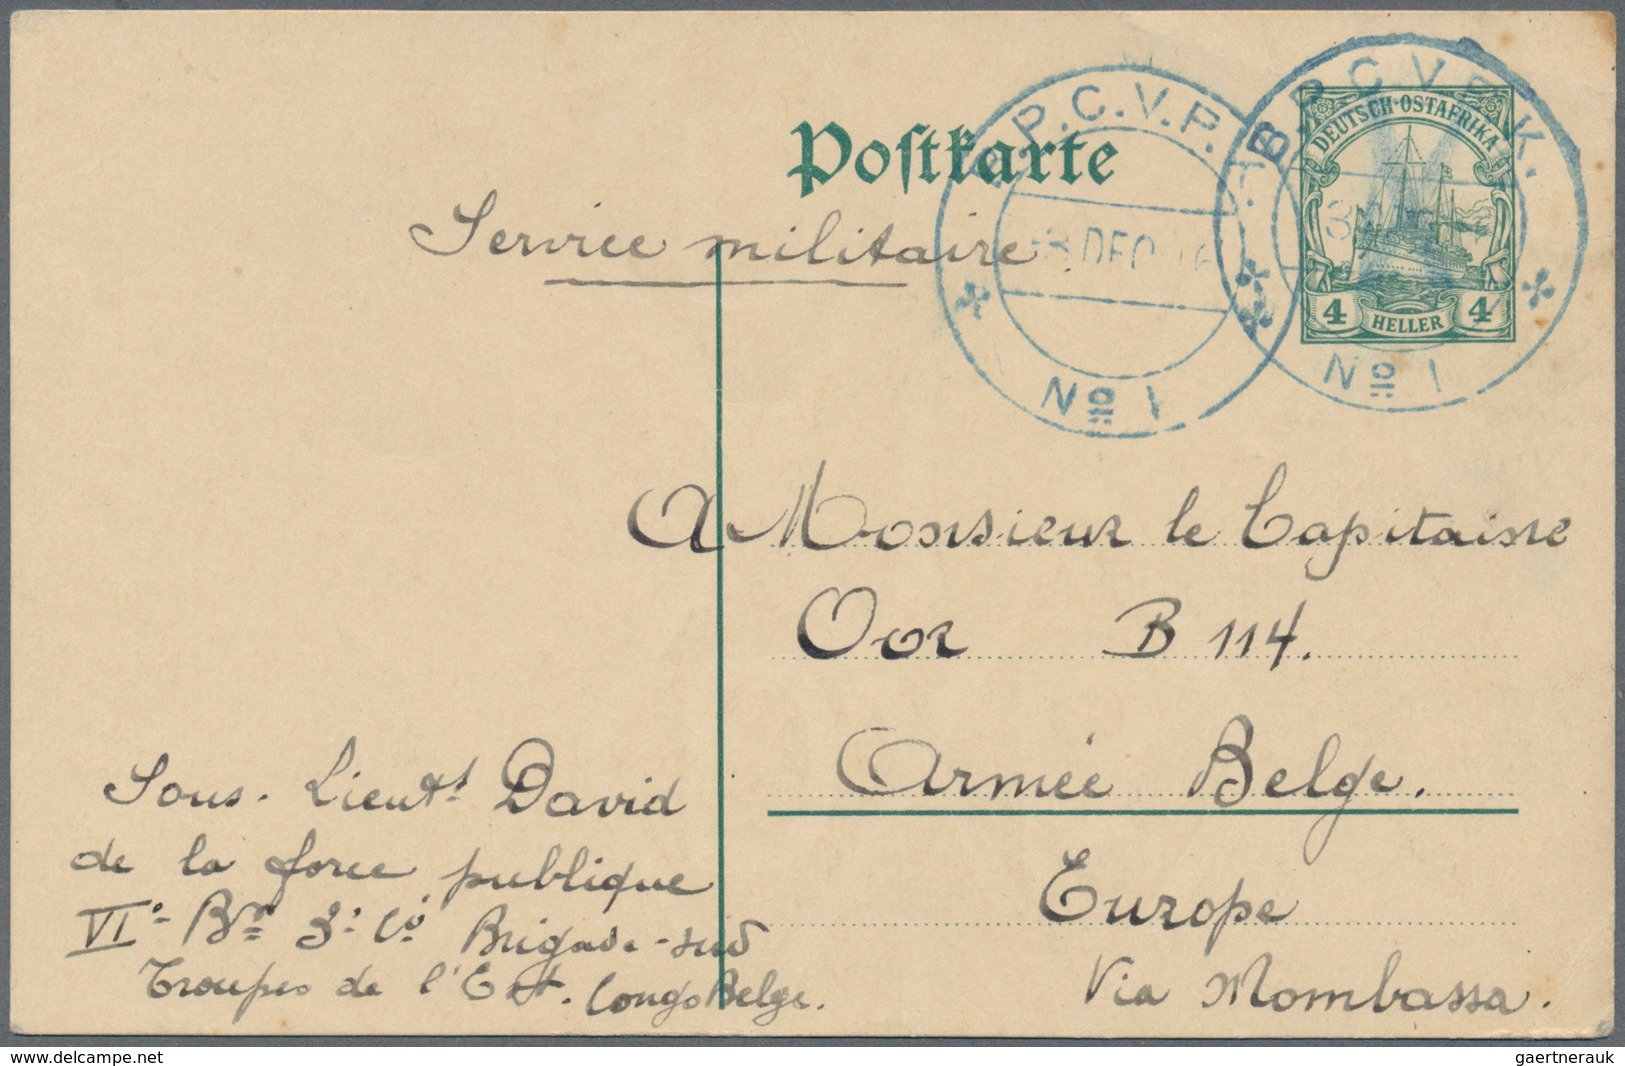 Postkarte
B.P.C.V.P.K.
-8 DEC 16
No 1
B.P.C.V.P.K.
No 1
DEUTSCH-OSTAFRIKA
4 HELLER 4
Service militaire
A Monsieur le Capitaine
Oor B 114.
Armée Belge.
Europe
Via Mombassa.
Sous-Lieutt David
de la force publique
VIe Bon 3e Cie Brigade-sud
Troupes de l'Est. Congo Belge.
gaertnerauk
delcampe.net